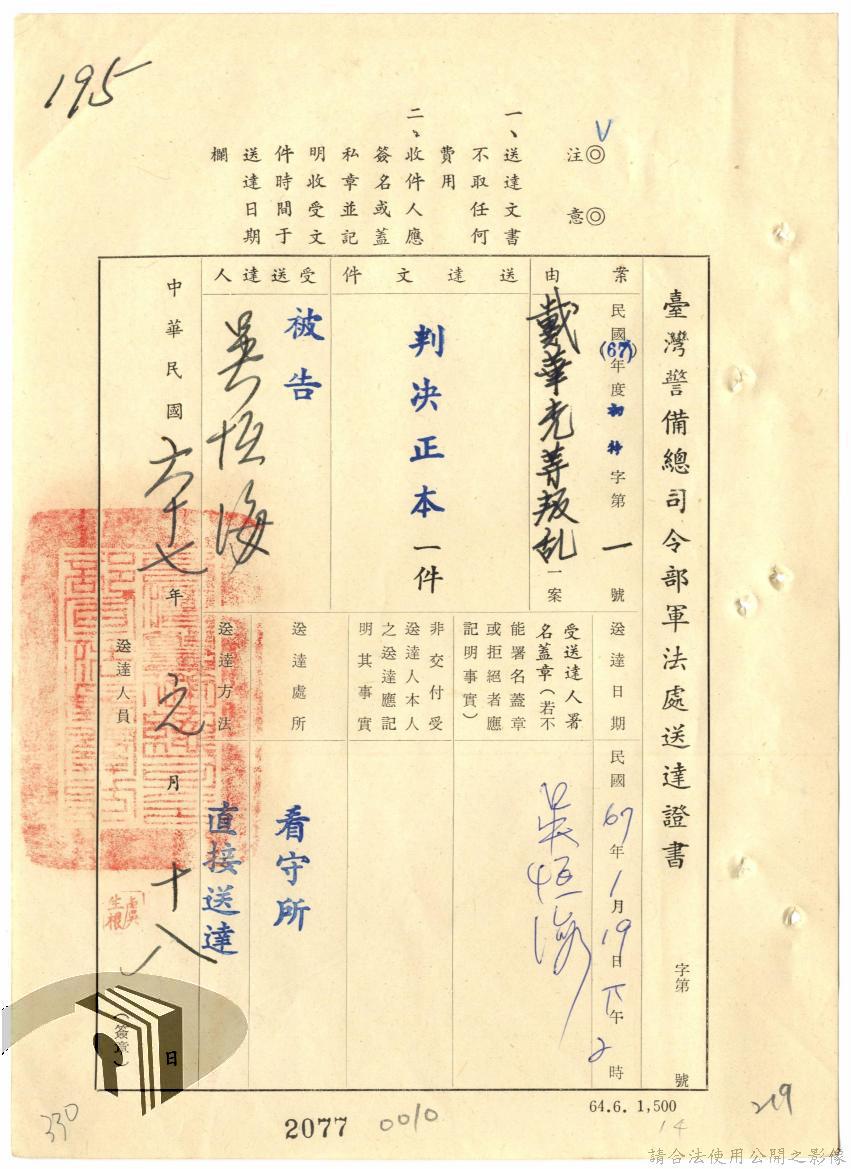 195
V
注意
◎◎
一、送達文書
不取任何
費用
二、收件人應
簽名或蓋
私章並記
明收受文
件時間于
送達日期
欄
臺灣警備總司令部軍法處送達證書
字第 號
案由
民國(67)年度初特字第一號
戴華光等叛乱一案
送達文件
判決正本一件
受送達人
被告
吳恒海
送達日期
民國67年1月19日下午2時
受送達人署
名蓋章(若不
能署名蓋章
或拒絕者應
記明事實)
吳恒海
非交付受
送達人本人
之送達應記
明其事實
送達處所
看守所
送達方法
直接送達
中華民國六十七年元月十八日
送達人員
(簽章)
64.6. 1,500
2077
0010
330
219
14
請合法使用公開之影像